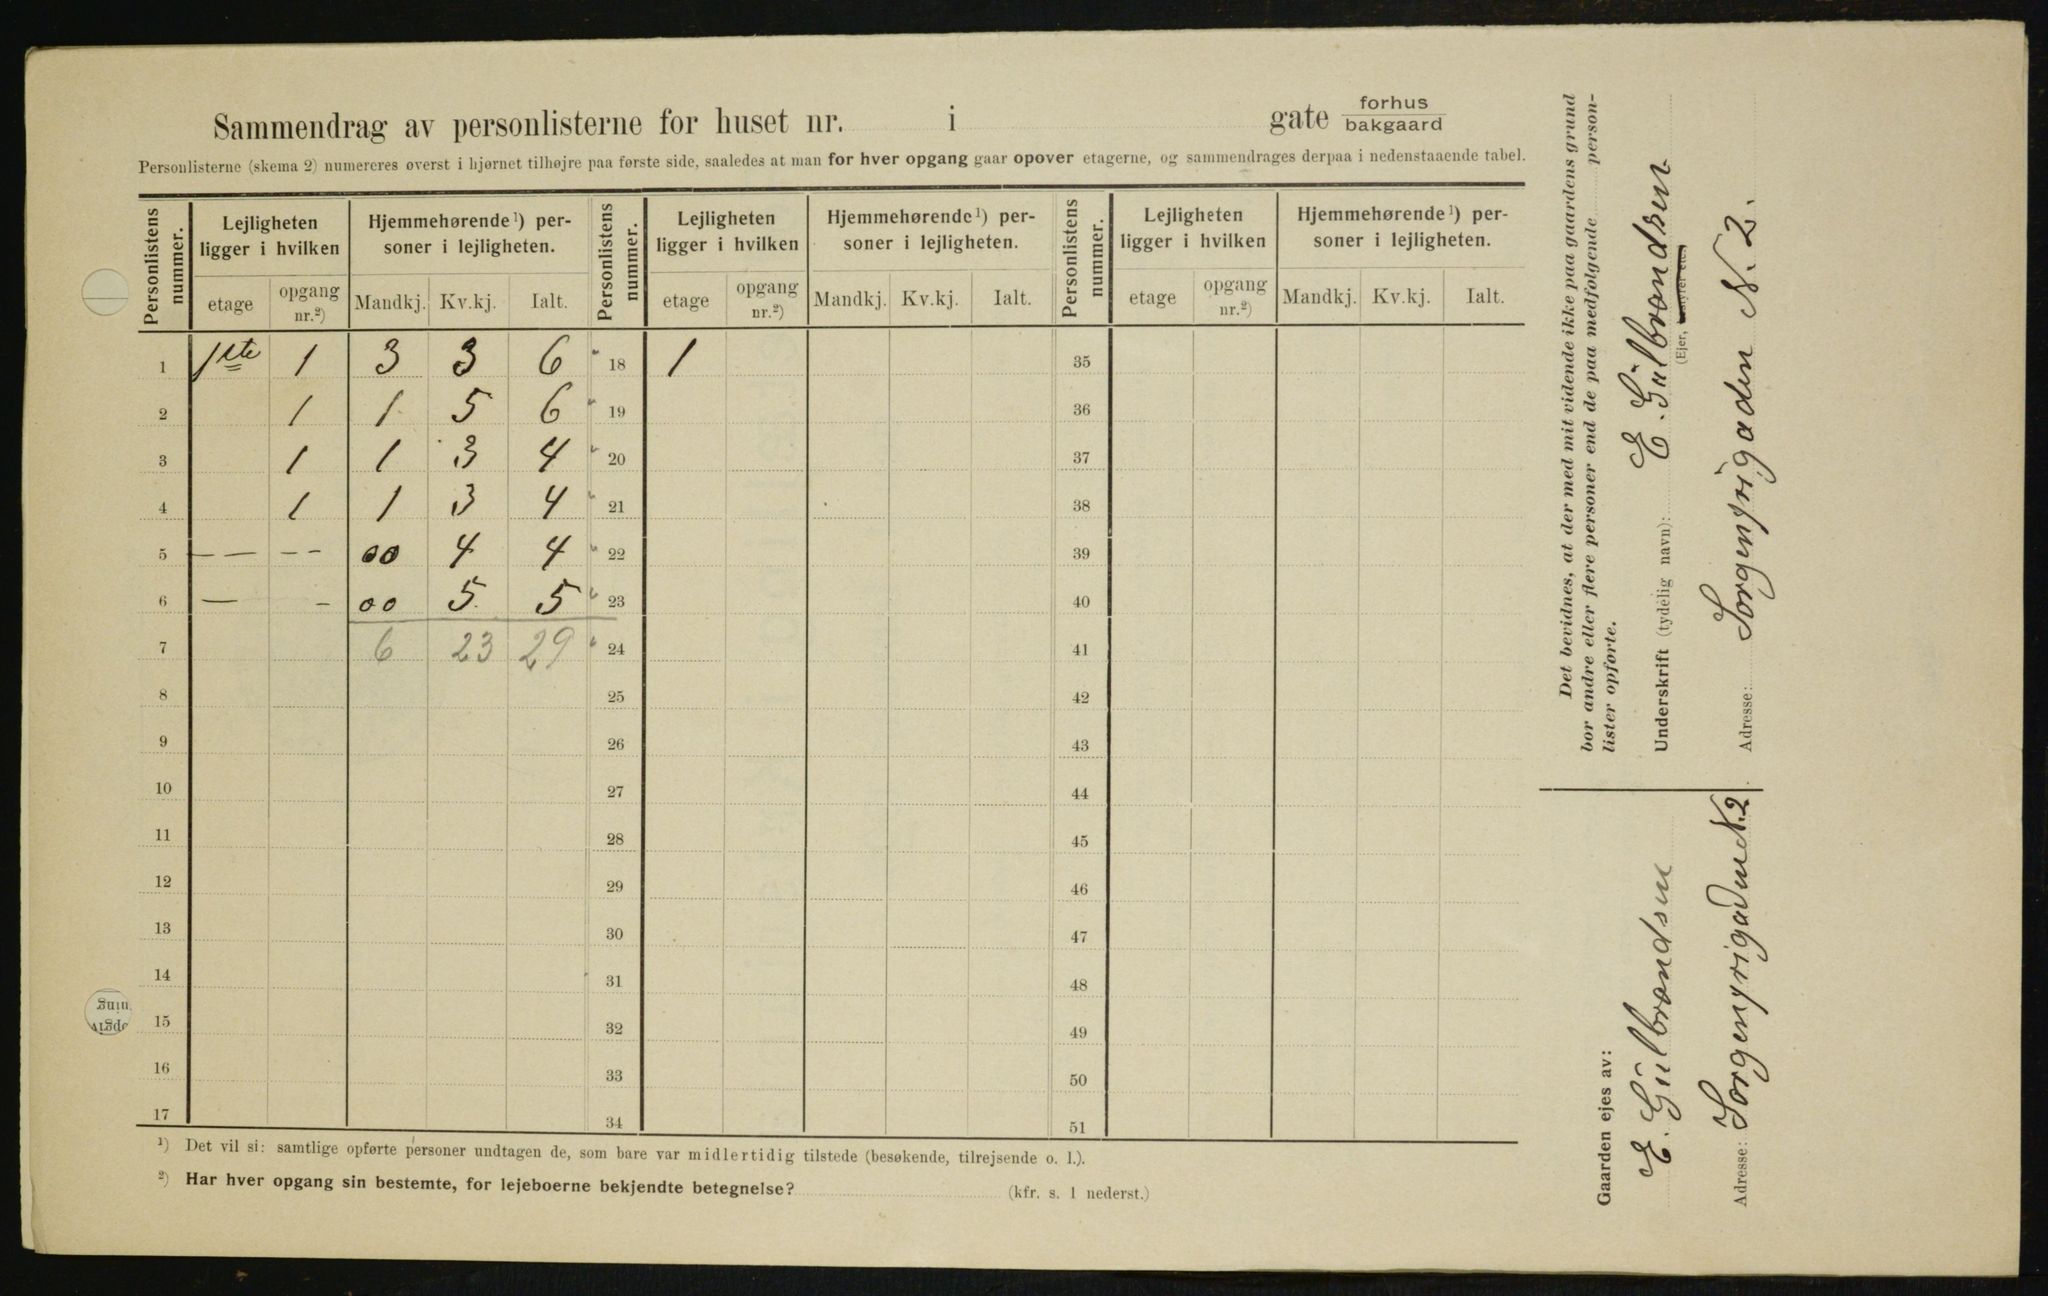 Sammendrag av personlisterne for huset nr. i gate forhus bakgaard
Personlisterne (skema 2) numereres øverst i hjørnet tilhøjre paa første side, saaledes at man for hver opgang gaar opover etagerne, og sammendrages derpaa i nedenstaaende tabel.
Personlistens nummer. Lejligheten ligger i hvilken Hjemmehørende ¹) personer i lejligheten. Personlistens nummer. Lejligheten ligger i hvilken Hjemmehørende ¹) personer i lejligheten. Personlistens nummer. Lejligheten ligger i hvilken Hjemmehørende ¹) personer i lejligheten.
etage opgang nr.²) Mandkj. Kv.kj. Ialt. etage opgang nr.²) Mandkj. Kv.kj. Ialt. etage opgang nr.²) Mandkj. Kv.kj. Ialt.
1 1ste 1 3 3 6 18 1 35
2 1 1 5 6 19 36
3 1 1 3 4 20 37
4 1 1 3 4 21 38
5 — — - - 00 4 4 22 39
6 — - 00 5 5 23 40
7 6 23 29 24 41
8 25 42
9 26 43
10 27 44
11 28 45
12 29 46
13 30 47
14 31 48
15 32 49
16 33 50
17 34 51
¹) Det vil si: samtlige opførte personer undtagen de, som bare var midlertidig tilstede (besøkende, tilrejsende o. l.).
²) Har hver opgang sin bestemte, for lejeboerne bekjendte betegnelse? (kfr. s. 1 nederst.)
Det bevidnes, at der med mit vidende ikke paa gaardens grund
bor andre eller flere personer end de paa medfølgende person-
lister opførte.
Underskrift (tydelig navn): E. Gülbrandsen
(Ejer,
Adresse: Sorgenfrigaden N. 2.
Gaarden ejes av:
E. Gülbrandsen
Adresse: Sorgenfrigaden N. 2.